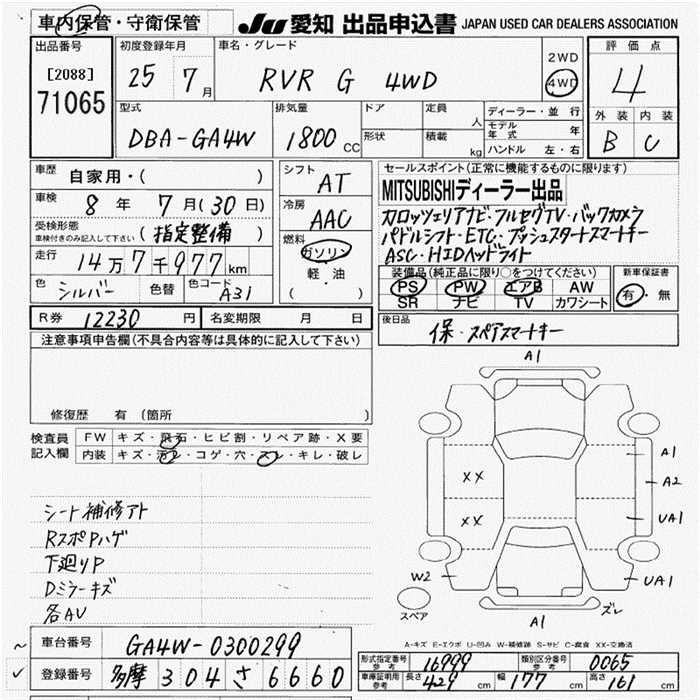 車内保管・守衛保管
JU 愛知 出品申込書 JAPAN USED CAR DEALERS ASSOCIATION
出品番号
[2088]
71065
初度登録年月
25 7月
車名・グレード
RVR G 4WD
2WD
4WD
評価点
4
外装 内装
B C
型式
DBA-GA4W
排気量
1800 CC
ドア
形状
定員 人
積載 kg
ディーラー・並行
モデル年式 年
ハンドル 左・右
車歴
自家用・( )
車検
8年 7月(30日)
受検形態
車検付きのみ記入して下さい
(指定整備)
走行
14万7千977km
色
シルバー
色替
色コード
A31
シフト
AT
冷房
AAC
燃料
ガソリン
軽・油
( )
セールスポイント(正常に機能するものに限ります)
MITSUBISHIディーラー出品
カロッツェリアナビ・フルセグTV・バックカメラ
パドルシフト・ETC・プッシュスタートスマートキー
ASC・HIDヘッドライト
装備品(純正品に限り○をつけてください)
PS PW エアB AW
SR ナビ TV カワシート
新車保証書
有・無
R券 12230円
名変期限 月 日
後日品
保・スペアスマートキー
注意事項申告欄(不具合内容等は具体的に記入して下さい)
修復歴 有(箇所 )
検査員
記入欄
FW キズ・飛石・ヒビ割・リペア跡・X要
内装 キズ・汚レ・コゲ・穴・スレ・キレ・破レ
シート補修アト
RスポPハゲ
下廻りP
Dミラーキズ
各AU
A1
A1
A2
XX
XX
UA1
W2
UA1
スペア
A1
ズレ
A-キズ E-エクボ U-凹み W-補修跡 S-サビ C-腐食 XX-交換済
車台番号
GA4W-0300299
登録番号
多摩 304 さ 6660
形式指定番号
参考
16999
類別区分番号
参考
0065
車庫証明用
参考
長さ 429 cm
幅 177 cm
高さ 161 cm